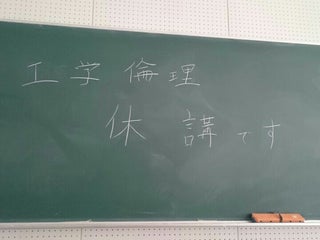 工学倫理
休講です